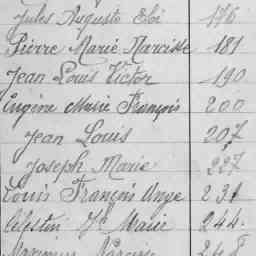 Jules Auguste Eloi 176
Pierre Marie Narcisse 181
Jean Louis Victor 190
Eugène Marie François 200
Jean Louis 207
Joseph Marie 227
Louis François Ange 231
Célestin Marie 244
248